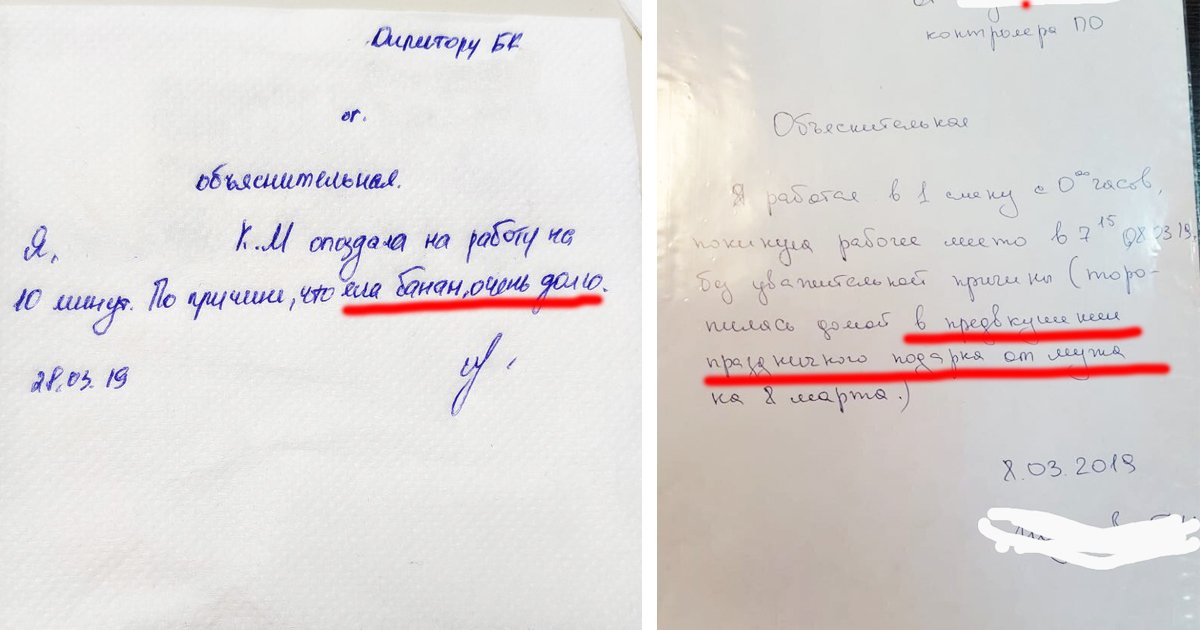 Директору БК
от.
объяснительная.
Я, К.М опоздала на работу на
10 минут. По причине, что ела банан, очень долго.
28.03.19
контролера ПО
Объяснительная
Я работая в 1 смену с 0⁰⁰ часов,
покинула рабочее место в 7¹⁵ 08.03.19.
без уважительной причины (торо-
пилась домой в предвкушении
праздничного подарка от мужа
на 8 марта.)
8.03.2019